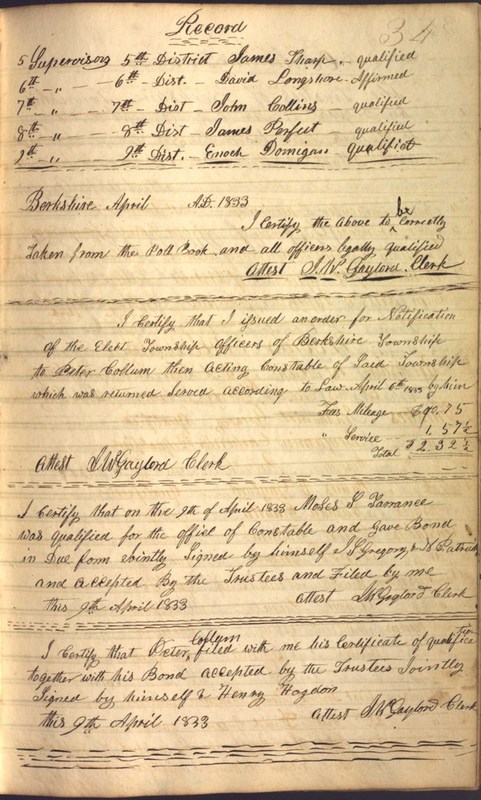 Record
34
5 Supervisors 5th District James Sharp - qualified
6th - " - 6th - Dist. - David Longshore - Affirmed
7th - " - 7th - Dist - John Collins - qualified
8th - " 8th Dist - James Perfect - qualified
9th - " 9th Dist. - Enoch Domigan qualified
Berkshire April A.D. 1833
I Certify the above to be Correctly
taken from the Poll Book and all officers legally qualified
Attest J. W. Gaylord, Clerk
I Certify that I issued an order for Notification
of the Elect Township officers of Berkshire Township
to Peter Collum then acting Constable of Said Township
which was returned Served according to Law. April 6th 1833 by him
Fees Mileage - $0.75
" Service - 1.57½
Total $2.32½
Attest J W Gaylord Clerk
I Certify that on the 9th of April 1833 Moses S Tarrance
was qualified for the office of Constable and Gave Bond
in Due form Jointly Signed by himself I S Gregory, & N Patrick
and accepted By the Trustees and Filed by me
this 9th April 1833 attest J W Gaylord Clerk
I Certify that Peter Collum filed with me his Certificate of qualification
together with his Bond accepted by the Trustees Jointly
Signed by himself & Henry Hogdon
this 9th April 1833 Attest J W Gaylord Clerk